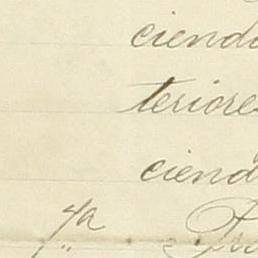 ciendo
teriores
ciend
4a